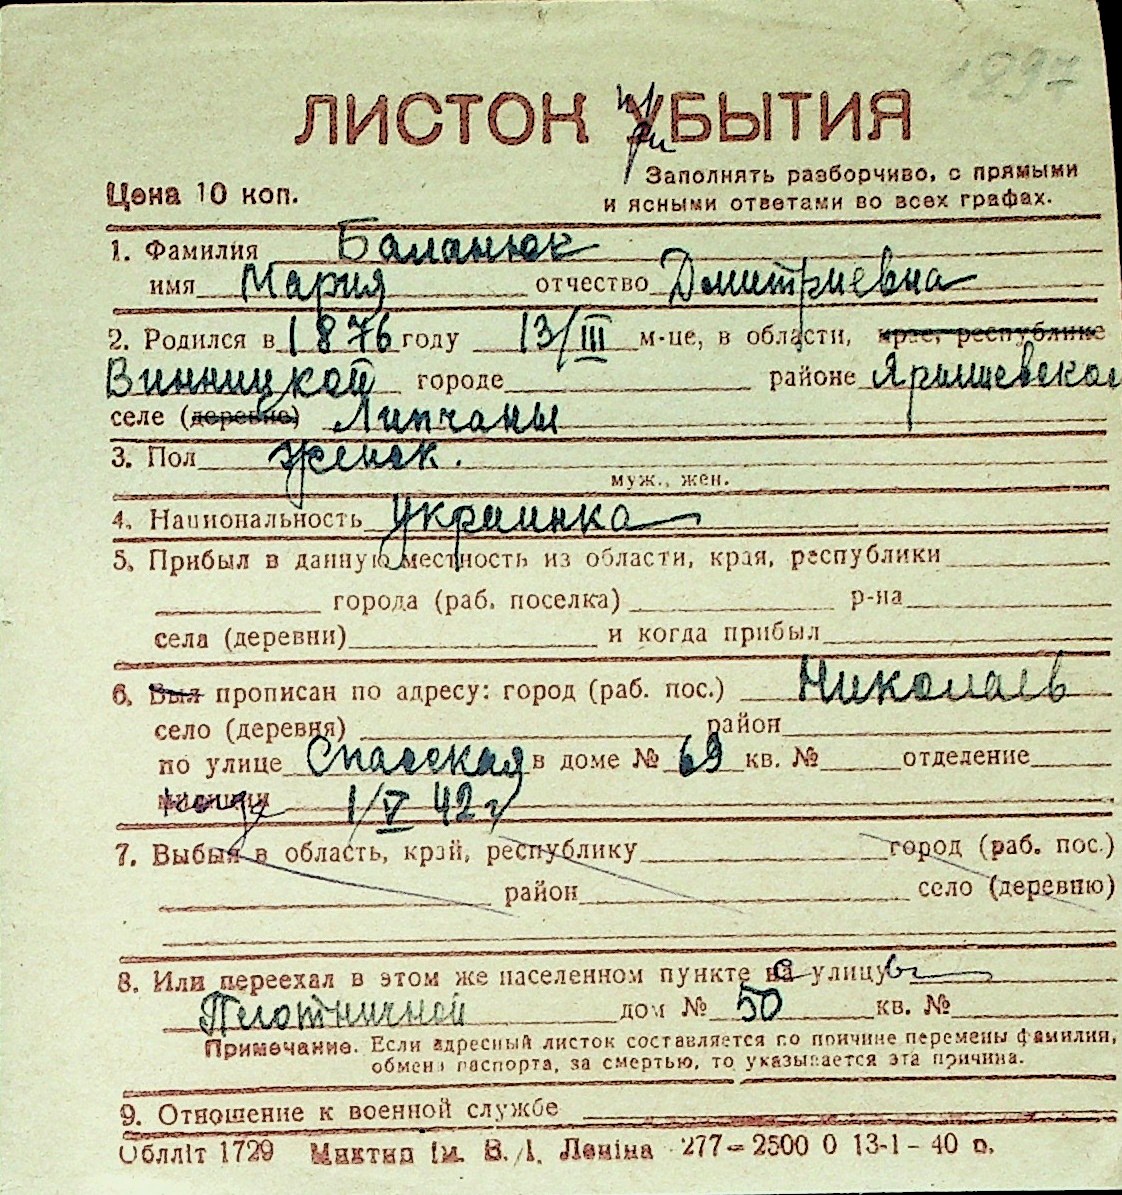 1897
ЛИСТОК при УБЫТИЯ
Цена 10 коп.
Заполнять разборчиво, с прямыми
и ясными ответами во всех графах.
1. Фамилия Баланюк
имя Мария отчество Дмитриевна
2. Родился в 1876 году 13/III м-це, в области, крае, республике
Винницкой городе районе Яришевском
селе (деревне) Липчаны
3. Пол женск.
муж., жен.
4. Национальность Украинка
5. Прибыл в данную местность из области, края, республики
города (раб. поселка) р-на
села (деревни) и когда прибыл
6. Был прописан по адресу: город (раб. пос.) Николаев
село (деревня) район
по улице Спасская в доме № 69 кв. № отделение
милиции 1/V 42 г
7. Выбыл в область, край, республику город (раб. пос.)
район село (деревню)
8. Или переехал в этом же населенном пункте с на улицы
Плотничной дом № 50 кв. №
Примечание. Если адресный листок составляется по причине перемены фамилии,
обмена паспорта, за смертью, то указывается эта причина.
9. Отношение к военной службе
Облліт 1729 Миктип ім. В. І. Леніна 277—2500 0 13-1-40 р.